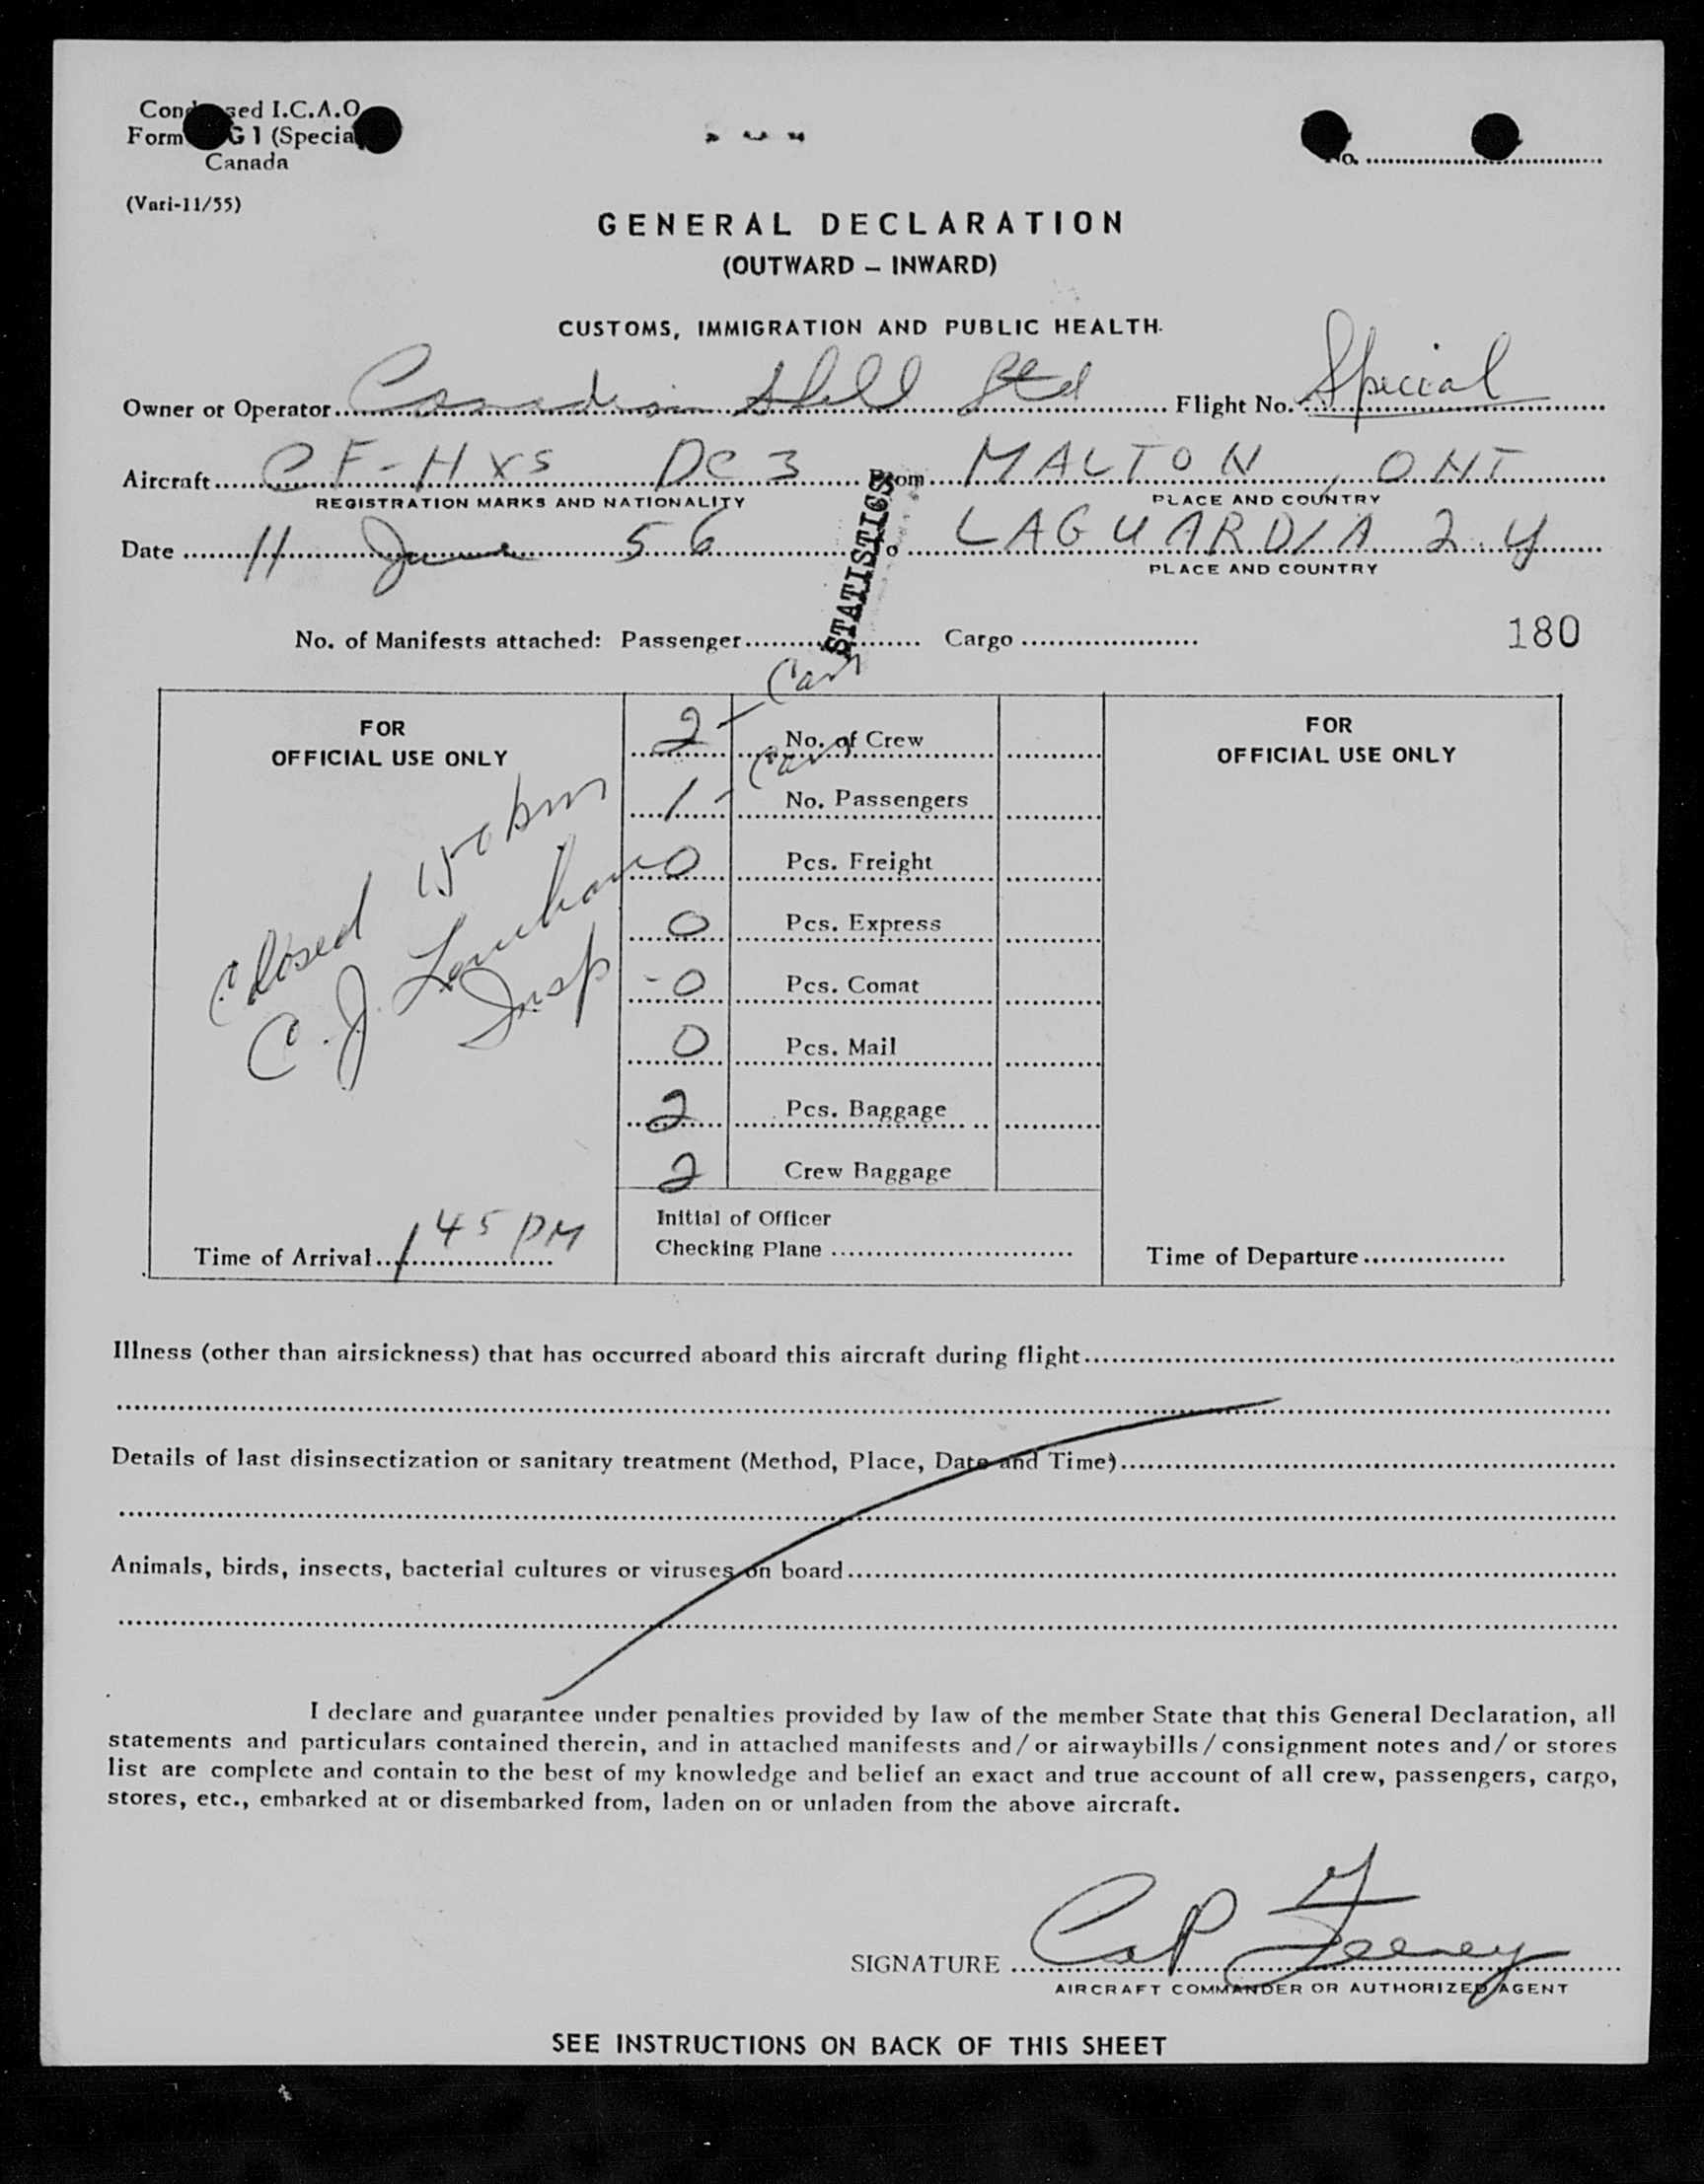 Condensed I.C.A.O.
Form G 1 (Special)
Canada
(Vari-11/55)
No.
GENERAL DECLARATION
(OUTWARD – INWARD)
CUSTOMS, IMMIGRATION AND PUBLIC HEALTH.
Owner or Operator Canadian Shell Ltd Flight No. Special
Aircraft CF-HXS DC3 From MALTON, ONT
REGISTRATION MARKS AND NATIONALITY PLACE AND COUNTRY
Date 11 June 56 To LAGUARDIA
PLACE AND COUNTRY
STATISTICS
No. of Manifests attached: Passenger Cargo 180
Can
FOR
OFFICIAL USE ONLY
2 – No. of Crew
Can
1 – No. Passengers
0 Pcs. Freight
0 Pcs. Express
- 0 Pcs. Comat
0 Pcs. Mail
2 Pcs. Baggage
2 Crew Baggage
Closed 150 pm
C. J.
Insp
Time of Arrival 1 45 PM
Initial of Officer
Checking Plane
FOR
OFFICIAL USE ONLY
Time of Departure
Illness (other than airsickness) that has occurred aboard this aircraft during flight
Details of last disinsectization or sanitary treatment (Method, Place, Date and Time)
Animals, birds, insects, bacterial cultures or viruses on board
I declare and guarantee under penalties provided by law of the member State that this General Declaration, all
statements and particulars contained therein, and in attached manifests and/or airwaybills/consignment notes and/or stores
list are complete and contain to the best of my knowledge and belief an exact and true account of all crew, passengers, cargo,
stores, etc., embarked at or disembarked from, laden on or unladen from the above aircraft.
SIGNATURE Feeney
AIRCRAFT COMMANDER OR AUTHORIZED AGENT
SEE INSTRUCTIONS ON BACK OF THIS SHEET